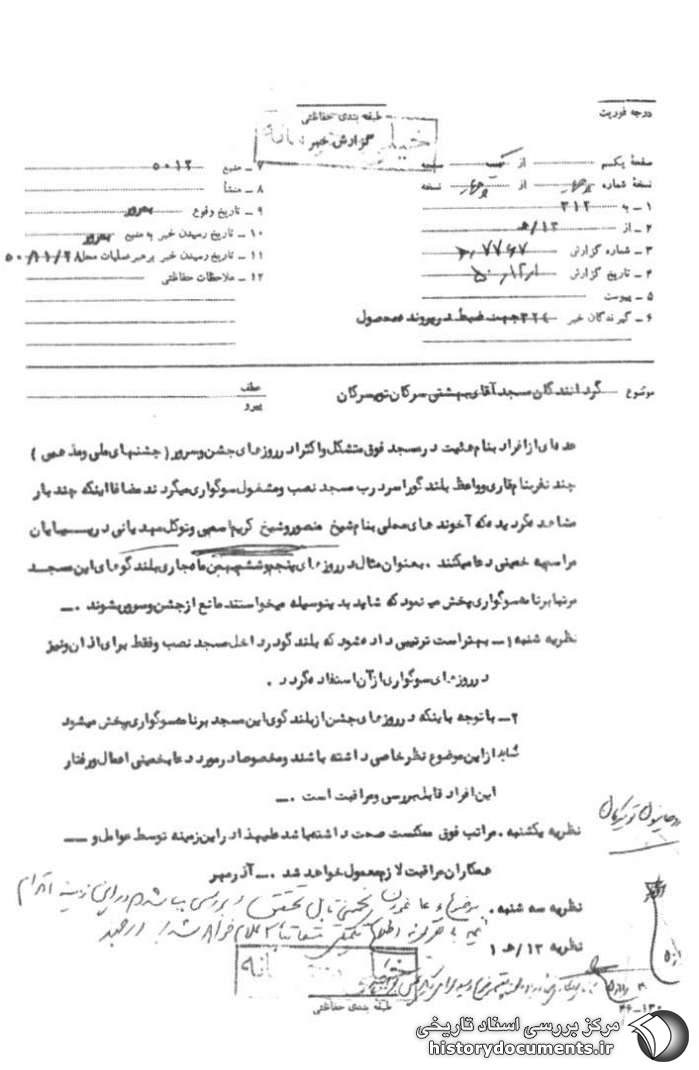 درجه فوریت
طبقه بندی حفاظتی
گزارش خبر
صفحهٔ یکم از یک صفحه
نسخهٔ شماره از نسخه
۱ ـ به ۳۱۲
۲ ـ از ۱۲/هـ
۳ ـ شماره گزارش
۴ ـ تاریخ گزارش
۵ ـ پیوست
۶ ـ گیرندگان خبر ۳۲٤ جهت ضبط در پرونده محصول
۷ ـ منبع ۵۰۱۲
۸ ـ منشأ
۹ ـ تاریخ وقوع بمرور
۱۰ ـ تاریخ رسیدن خبر به منبع بمرور
۱۱ ـ تاریخ رسیدن خبر برهبر عملیات محل ۵۰/۱۱/۲۸
۱۲ ـ ملاحظات حفاظتی
موضوع ـ گردانندگان مسجد آقای بهشتی سرکان تویسرکان
عطف
پیرو
عده ای از افراد بنام هیئت در مسجد فوق متشکل و اکثرا در روزهای جشن و سرور (جشنهای ملی و مذهبی)
چند نفر بنام قاری و واعظ بلندگو را سر درب مسجد نصب و مشغول سوگواری میگردند مضافا اینکه چند بار
مشاهده گردیده که آخوندهای محلی بنام شیخ منصور و شیخ کریم اسمی و توکل مهدیانی در پایان
مراسم به خمینی دعا میکنند . بعنوان مثال در روزهای پنجم و ششم بهمن ماه جاری بلندگوهای این مسجد
مرتبا برنامه سوگواری پخش می نمود که شاید بدینوسیله میخواستند مانع از جشن و سرور بشوند . ــ
نظریه شنبه ۱ ــ بهتر است ترتیبی داده شود که بلندگو در داخل مسجد نصب و فقط برای اذان و نیز
در روزهای سوگواری از آن استفاده گردد .
۲ ــ با توجه باینکه در روزهای جشن از بلندگوی این مسجد برنامه سوگواری پخش میشود
شاید از این موضوع نظر خاصی داشته باشند و مخصوصا در مورد دعا بخمینی اعمال و رفتار
این افراد قابل بررسی و مراقبت است . ــ
نظریه یکشنبه . مراتب فوق ممکنست صحت داشته باشد علیهذا در این زمینه توسط عوامل و ــ
همکاران مراقبت لازم معمول خواهد شد . ــ آذرمهر
روحانیون تویسرکان
نظریه سه شنبه .
نظریه ۱۲ / هـ ۱
طبقه بندی حفاظتی
۳۶ــ۱۳۰
مرکز بررسی اسناد تاریخی
historydocuments.ir